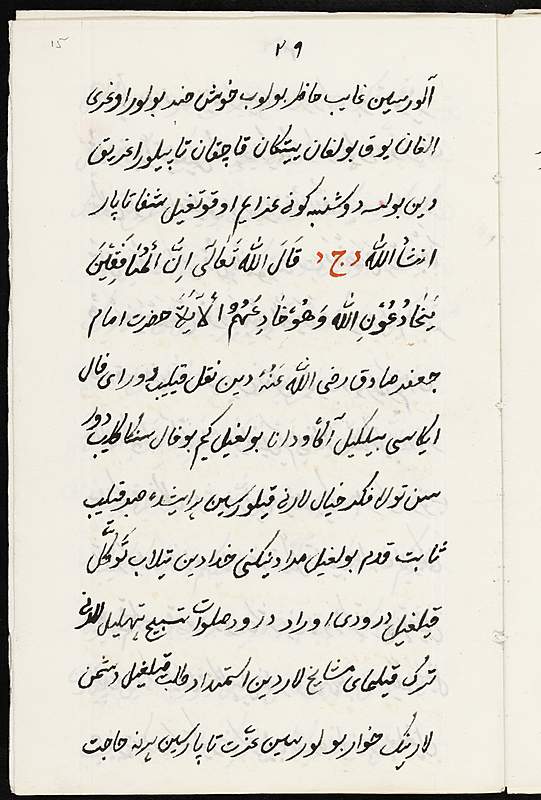 15
۲۹
آلورسین غایب حاظر بولوب خوش خند بولور اوغری
الغان یوق بولغان ییتکان قاچقان تاپیلور اغریق
دین بولسه دوشنبه کونی عذایم اوقوتغیل شفا تاپار
انشأ الله د ج د قَالَ اللهُ تَعَالَی اِنَّ الْمُنَافِقِیْنَ
یُخَادُعُوْنِ اللهُ وَهُوَ خَادِعُهُمْ اَلآیَة حضرت امام
جعفر صادق رضی الله عَنْهُ دین نقل قیلیب دور ای فال
ایکاسی بیلکیل آکاه و دانا بولغیل کیم بو فال سنکا کلیب دور
سن تولا فکر خیال لارنی قیلورسین هر ایشده صبر قیلیب
ثابت قدم بولغیل مرادینکنی خدادین تیلاب تَوَکُّل
قیلغیل درودی اوراد درود صلوات تسبیح تهلیل لارنی
ترک قیلمای مشایخ لاردین استمداد طلب قیلغیل دشمن
لارینک خوار بولورسین عزّت تاپارسین هرنه حاجت